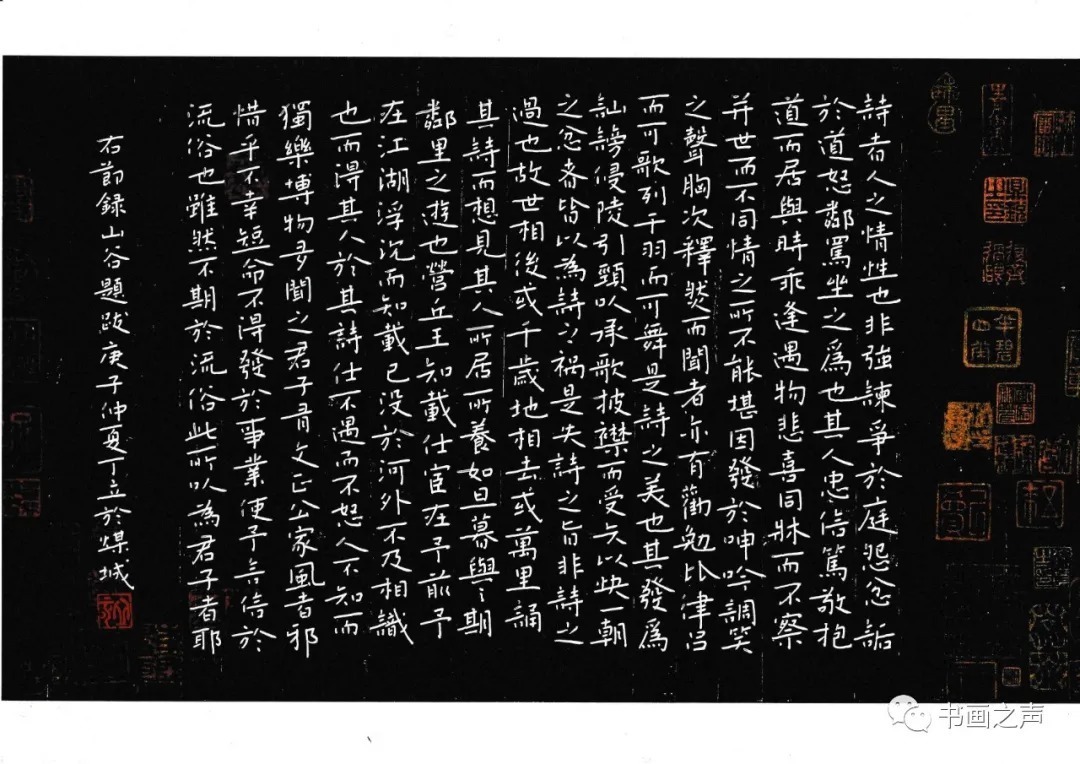 詩者人之情性也非強諫爭於庭怨忿詬
於道怒鄰罵坐之為也其人忠信篤敬抱
道而居與時乖逢遇物悲喜同牀而不察
并世而不同情之所不能堪因發於呻吟調笑
之聲胸次釋然而聞者亦有勸勉比律呂
而可歌列干羽而可舞是詩之美也其發為
訕謗侵陵引頸以承歌披襟而受矢以快一朝
之忿者皆以為詩之禍是失詩之旨非詩之
過也故世相後或千歲地相去或萬里誦
其詩而想見其人所居所養如旦暮與之期
鄰里之遊也營丘王知載仕宦在予前予
在江湖浮沉而知載已没於河外不及相識
也而得其人於其詩仕不遇而不怒人不知而
獨樂博物多聞之君子有文正公家風者邪
惜乎不幸短命不得發於事業使予言信於
流俗也雖然不期於流俗此所以為君子者耶
右節錄山谷題跋庚子仲夏丁立於煤城
书画之声